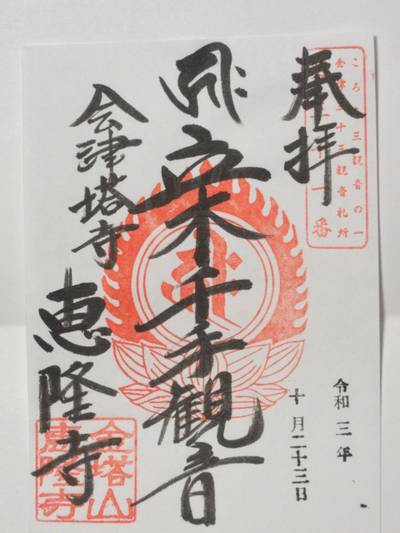 奉拝
ころり三観音の一
会津三十三観音札所
立木千手観音
会津塔寺
恵隆寺
令和三年
十月二十三日
金塔山
恵隆寺